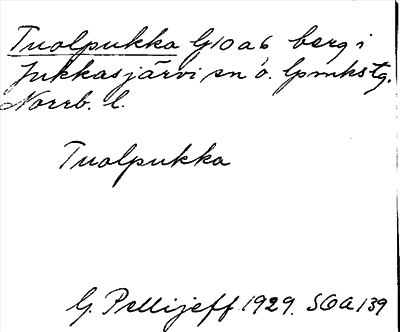 Tuolpukka G10a6 berg i
Jukkasjärvi sn o. lpmkstg.
Norrb. l.
Tuolpukka
G. Pellijeff 1929. SOA 139